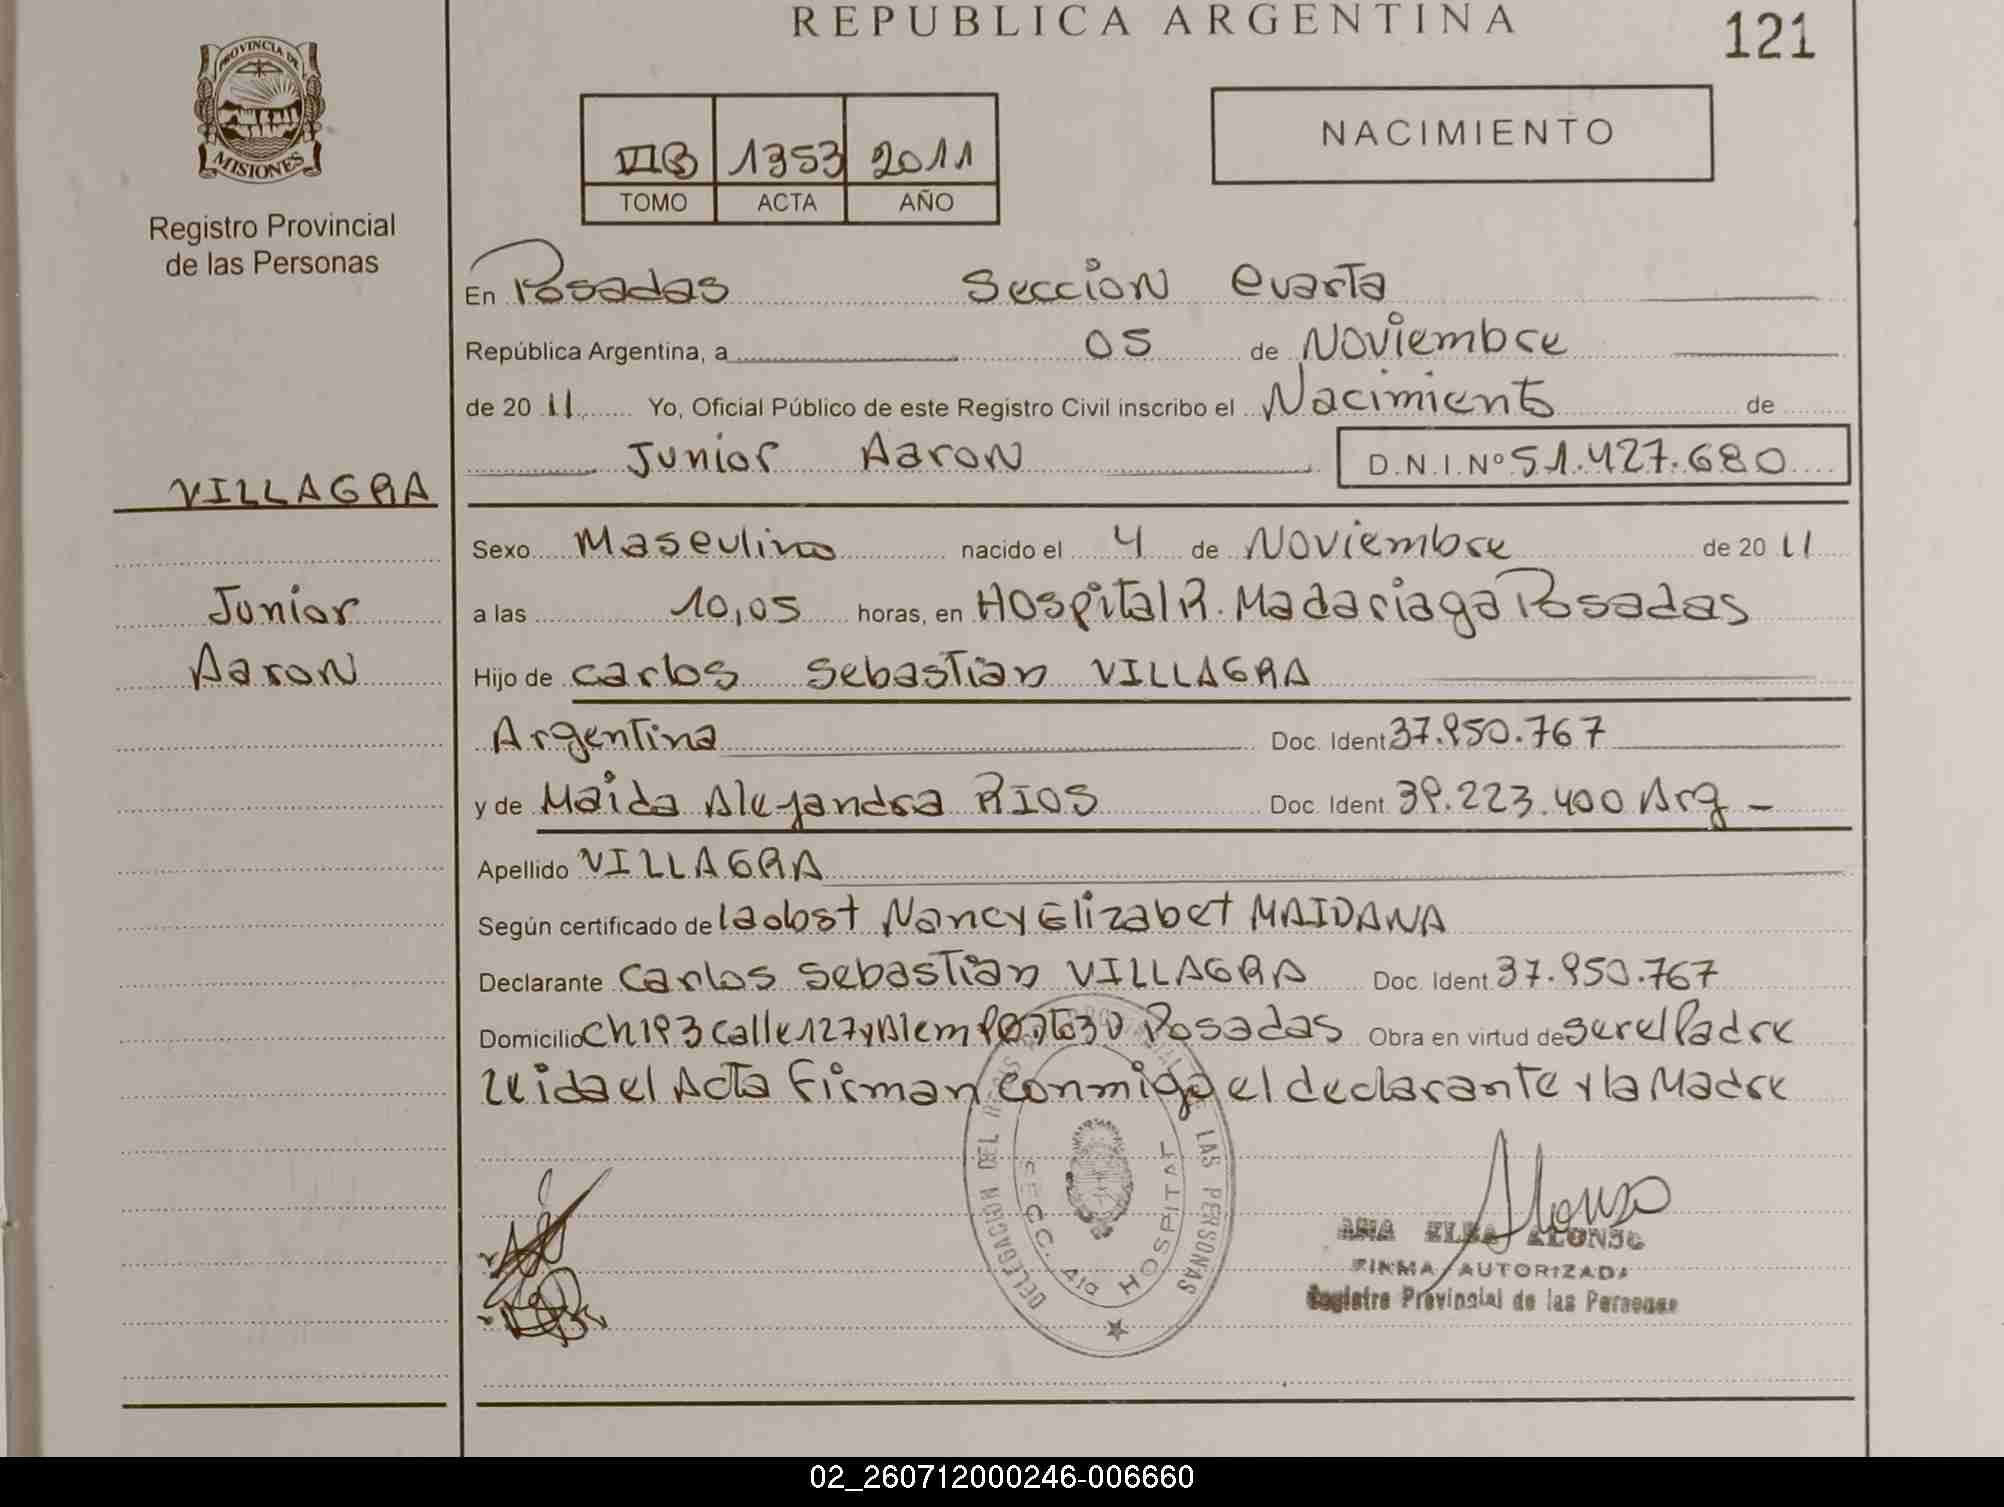 REPUBLICA ARGENTINA
121
PROVINCIA DE
MISIONES
Registro Provincial
de las Personas
VIIB 1353 2011
TOMO ACTA AÑO
NACIMIENTO
En Posadas Seccion Cuarta
República Argentina, a 05 de Noviembre
de 20 11 Yo, Oficial Público de este Registro Civil inscribo el Nacimiento de
Junior Aaron D.N.I.Nº 51.427.680
VILLAGRA
Junior
Aaron
Sexo Masculino nacido el 4 de Noviembre de 20 11
a las 10,05 horas, en Hospital R. Madariaga Posadas
Hijo de Carlos Sebastian VILLAGRA
Argentina Doc. Ident 37.950.767
y de Maida Alejandra RIOS Doc. Ident. 39.223.400 Arg -
Apellido VILLAGRA
Según certificado de la obst Nancy Elizabet MAIDANA
Declarante Carlos Sebastian VILLAGRA Doc. Ident 37.950.767
Domicilio Ch 193 calle 127 y Alem Posadas Obra en virtud de ser el Padre
leida el Acta firman conmigo el declarante y la Madre
DELEGACION DEL LAS PERSONAS
SECC. 4ta HOSPITAL
Alonso
ANA ELBA ALONSO
FIRMA AUTORIZADA
Registro Provincial de las Personas
02_260712000246-006660